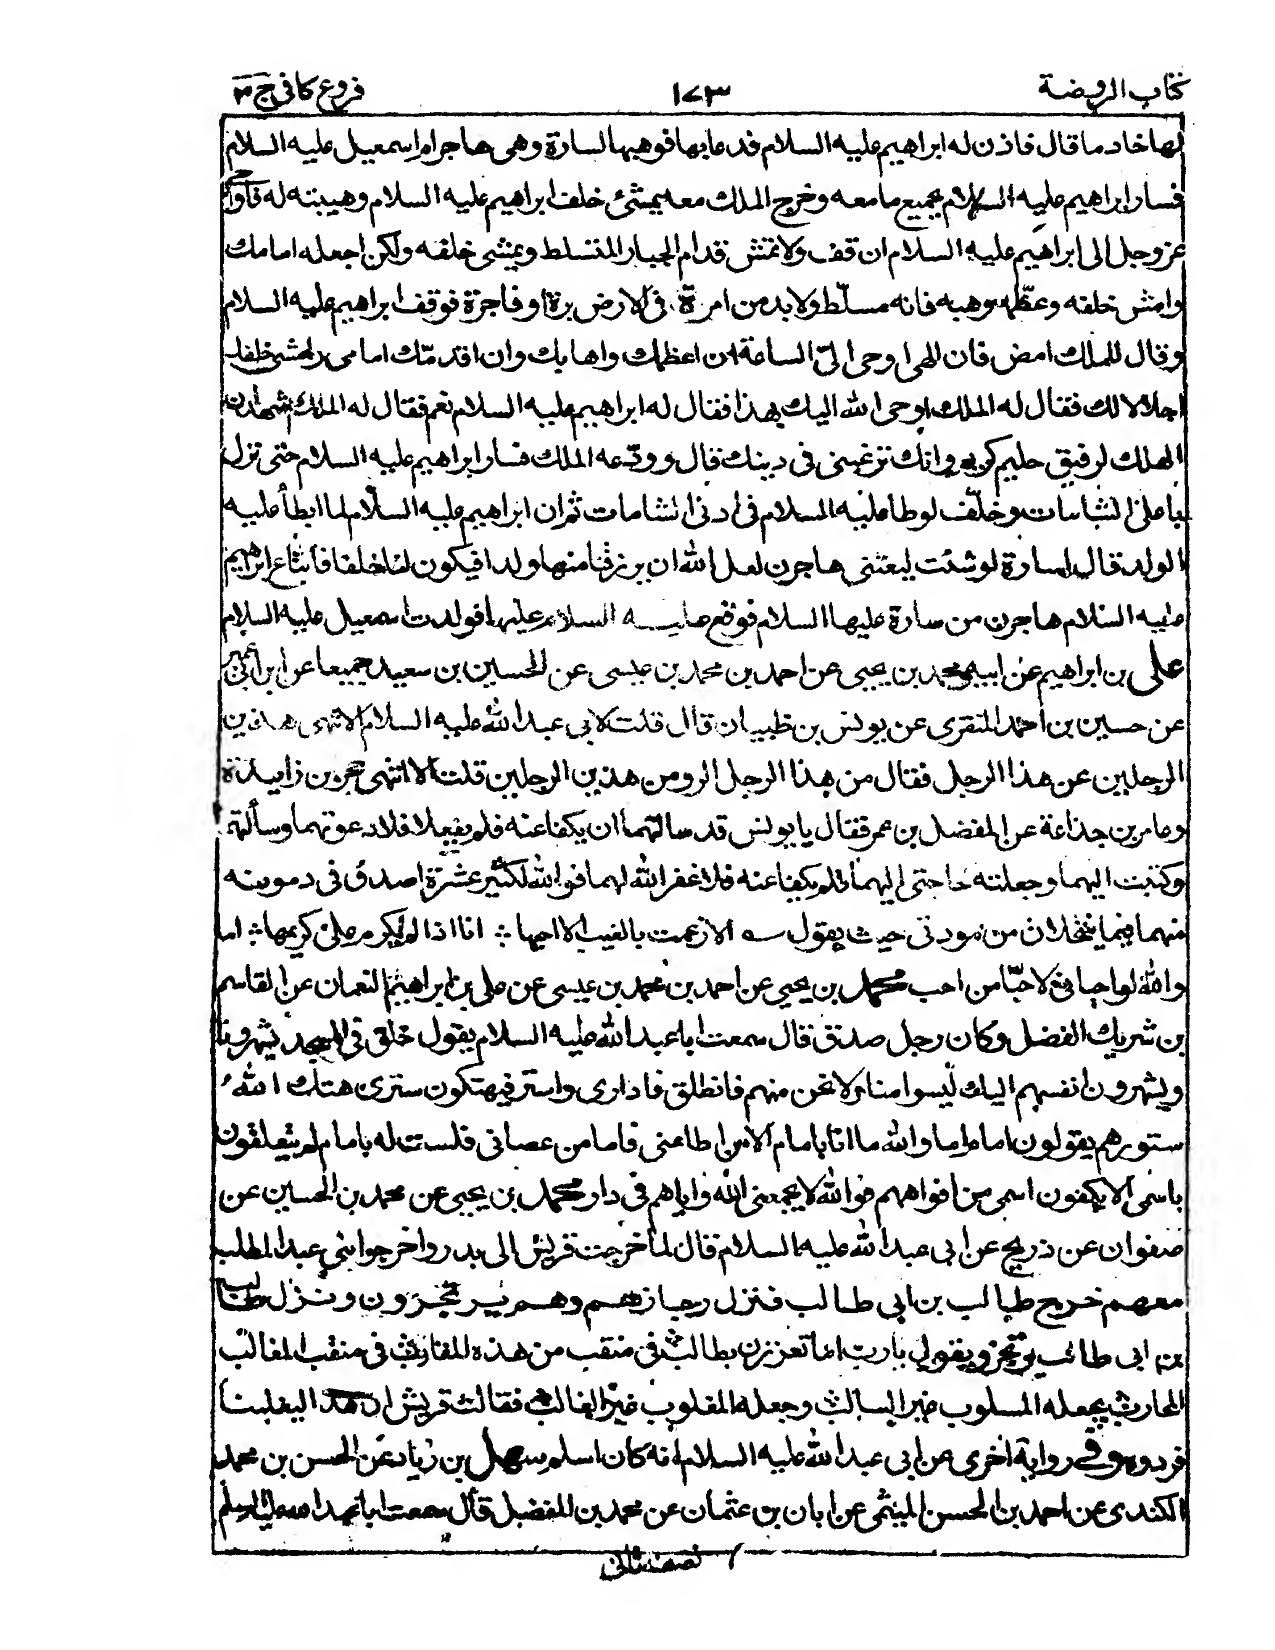 كتاب الروضة
١٧٣
فروع كافى ج ٣
لها خادما قال فاذن له ابراهيم عليه السلام فدعا بها فوهبها لسارة وهى هاجر ام اسمعيل عليه السلام
فسار ابراهيم عليه السلام بجميع ما معه وخرج الملك معه يمشئ خلف ابراهيم عليه السلام وهيبته له فاوحى
عز وجل الى ابراهيم عليه السلام ان قف ولا تمش قدام الجبار المتسلط ويمشى خلفه ولكن اجعله امامك
وامش خلفه وعظّمه وهبه فانه مسلّط ولا بد من امرة فى الارض برة او فاجرة فوقف ابراهيم عليه السلام
وقال للملك امض فان الهى اوحى الىّ الساعة ان اعظمك واهابك وان اقدمك امامى وامشى خلفك
اجلالا لك فقال له الملك اوحى الله اليك بهذا فقال له ابراهيم عليه السلام نعم فقال له الملك اشهد ان
الهك لرفيق حليم كريم وانك ترغبنى فى دينك قال وودّعه الملك فسار ابراهيم عليه السلام حتى نزل
باعلى الشامات وخلّف لوطا عليه السلام فى ادنى الشامات ثم ان ابراهيم عليه السلام لما ابطأ عليه
الولد قال لسارة لو شئت لبعتنى هاجر لعل الله ان يرزقنا منها ولدا فيكون لنا خلفا فابتاع ابراهيم
عليه السلام هاجر من سارة عليها السلام فوقع عليه السلام عليها فولدت اسمعيل عليه السلام
على بن ابراهيم عن ابيه ومحمد بن يحيى عن احمد بن محمد بن عيسى عن الحسين بن سعيد جميعا عن ابن ابى عمير
عن حسين بن احمد المنقرى عن يونس بن ظبيان قال قلت لابى عبد الله عليه السلام الا تنهى هذين
الرجلين عن هذا الرجل فقال من هذا الرجل ومن هذين الرجلين قلت الا تنهى حجر بن زايدة
وعامر بن جذاعة عن المفضل بن عمر فقال يا يونس قد سالتهما ان يكفا عنه فلم يفعلا فدعوتهما وسألتهما
وكتبت اليهما وجعلته حاجتى اليهما فلم يكفا عنه فلا غفر الله لهما فوالله لكثير عزة اصدق فى مودته
منهما فيما ينتحلان من مودتى حيث يقول الا زعمت بالغيب الا احبها انا اذا لم يكرم على كريمها اما
والله لو احبانى لاحبّا من احب محمد بن يحيى عن احمد بن محمد بن عيسى عن على بن ابراهيم النعمان عن القاسم
بن شريك الفضل وكان رجل صدق قال سمعت ابا عبد الله عليه السلام يقول خلق فى المسجد يشهرونا
ويشهرون انفسهم اليك ليسوا منا ولا نحن منهم فانطلق فادارى واستر فيهتكون سترى هتك الله
ستورهم يقولون امام اما والله ما انا بامام الا من اطاعنى فاما من عصانى فلست له بامام لم يتعلقون
باسمى الا يكفون اسمى من افواههم فوالله لا يجمعنى الله واياهم فى دار محمد بن يحيى عن محمد بن الحسين عن
صفوان عن ذريح عن ابى عبد الله عليه السلام قال لما خرجت قريش الى بدر واخرجوا بنى عبد المطلب
معهم خرج طالب بن ابى طالب فنزل رجازهم وهم يرتجزون ونزل طالب
بن ابى طالب يرتجز ويقول يا رب اما تعززن بطالب فى منقب من هذه المقانب فى منقب المغالب
المحارب يجعله المسلوب غير السالب وجعله المغلوب غير الغالب فقالت قريش ان هذا ليغلبنا
فردوه وفى رواية اخرى عن ابى عبد الله عليه السلام انه كان اسلم سهل بن زياد عن الحسن بن محمد
الكندى عن احمد بن الحسن الميثمى عن ابان بن عثمان عن محمد بن المفضل قال سمعت ابا عبد الله عليه السلام
نصف ثانى